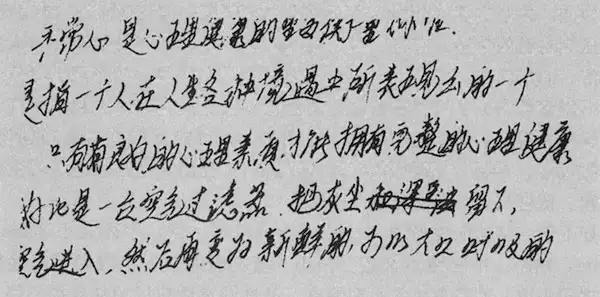 平常心是心理健康的
是指一个人在人生各种境遇中所表现出的一个
只有有良白的心理素质,才能拥有完整的心理健康
好比是一台空气过滤器.把灰尘留下,
进入,然后再变为新鲜的,可以大口呼吸的